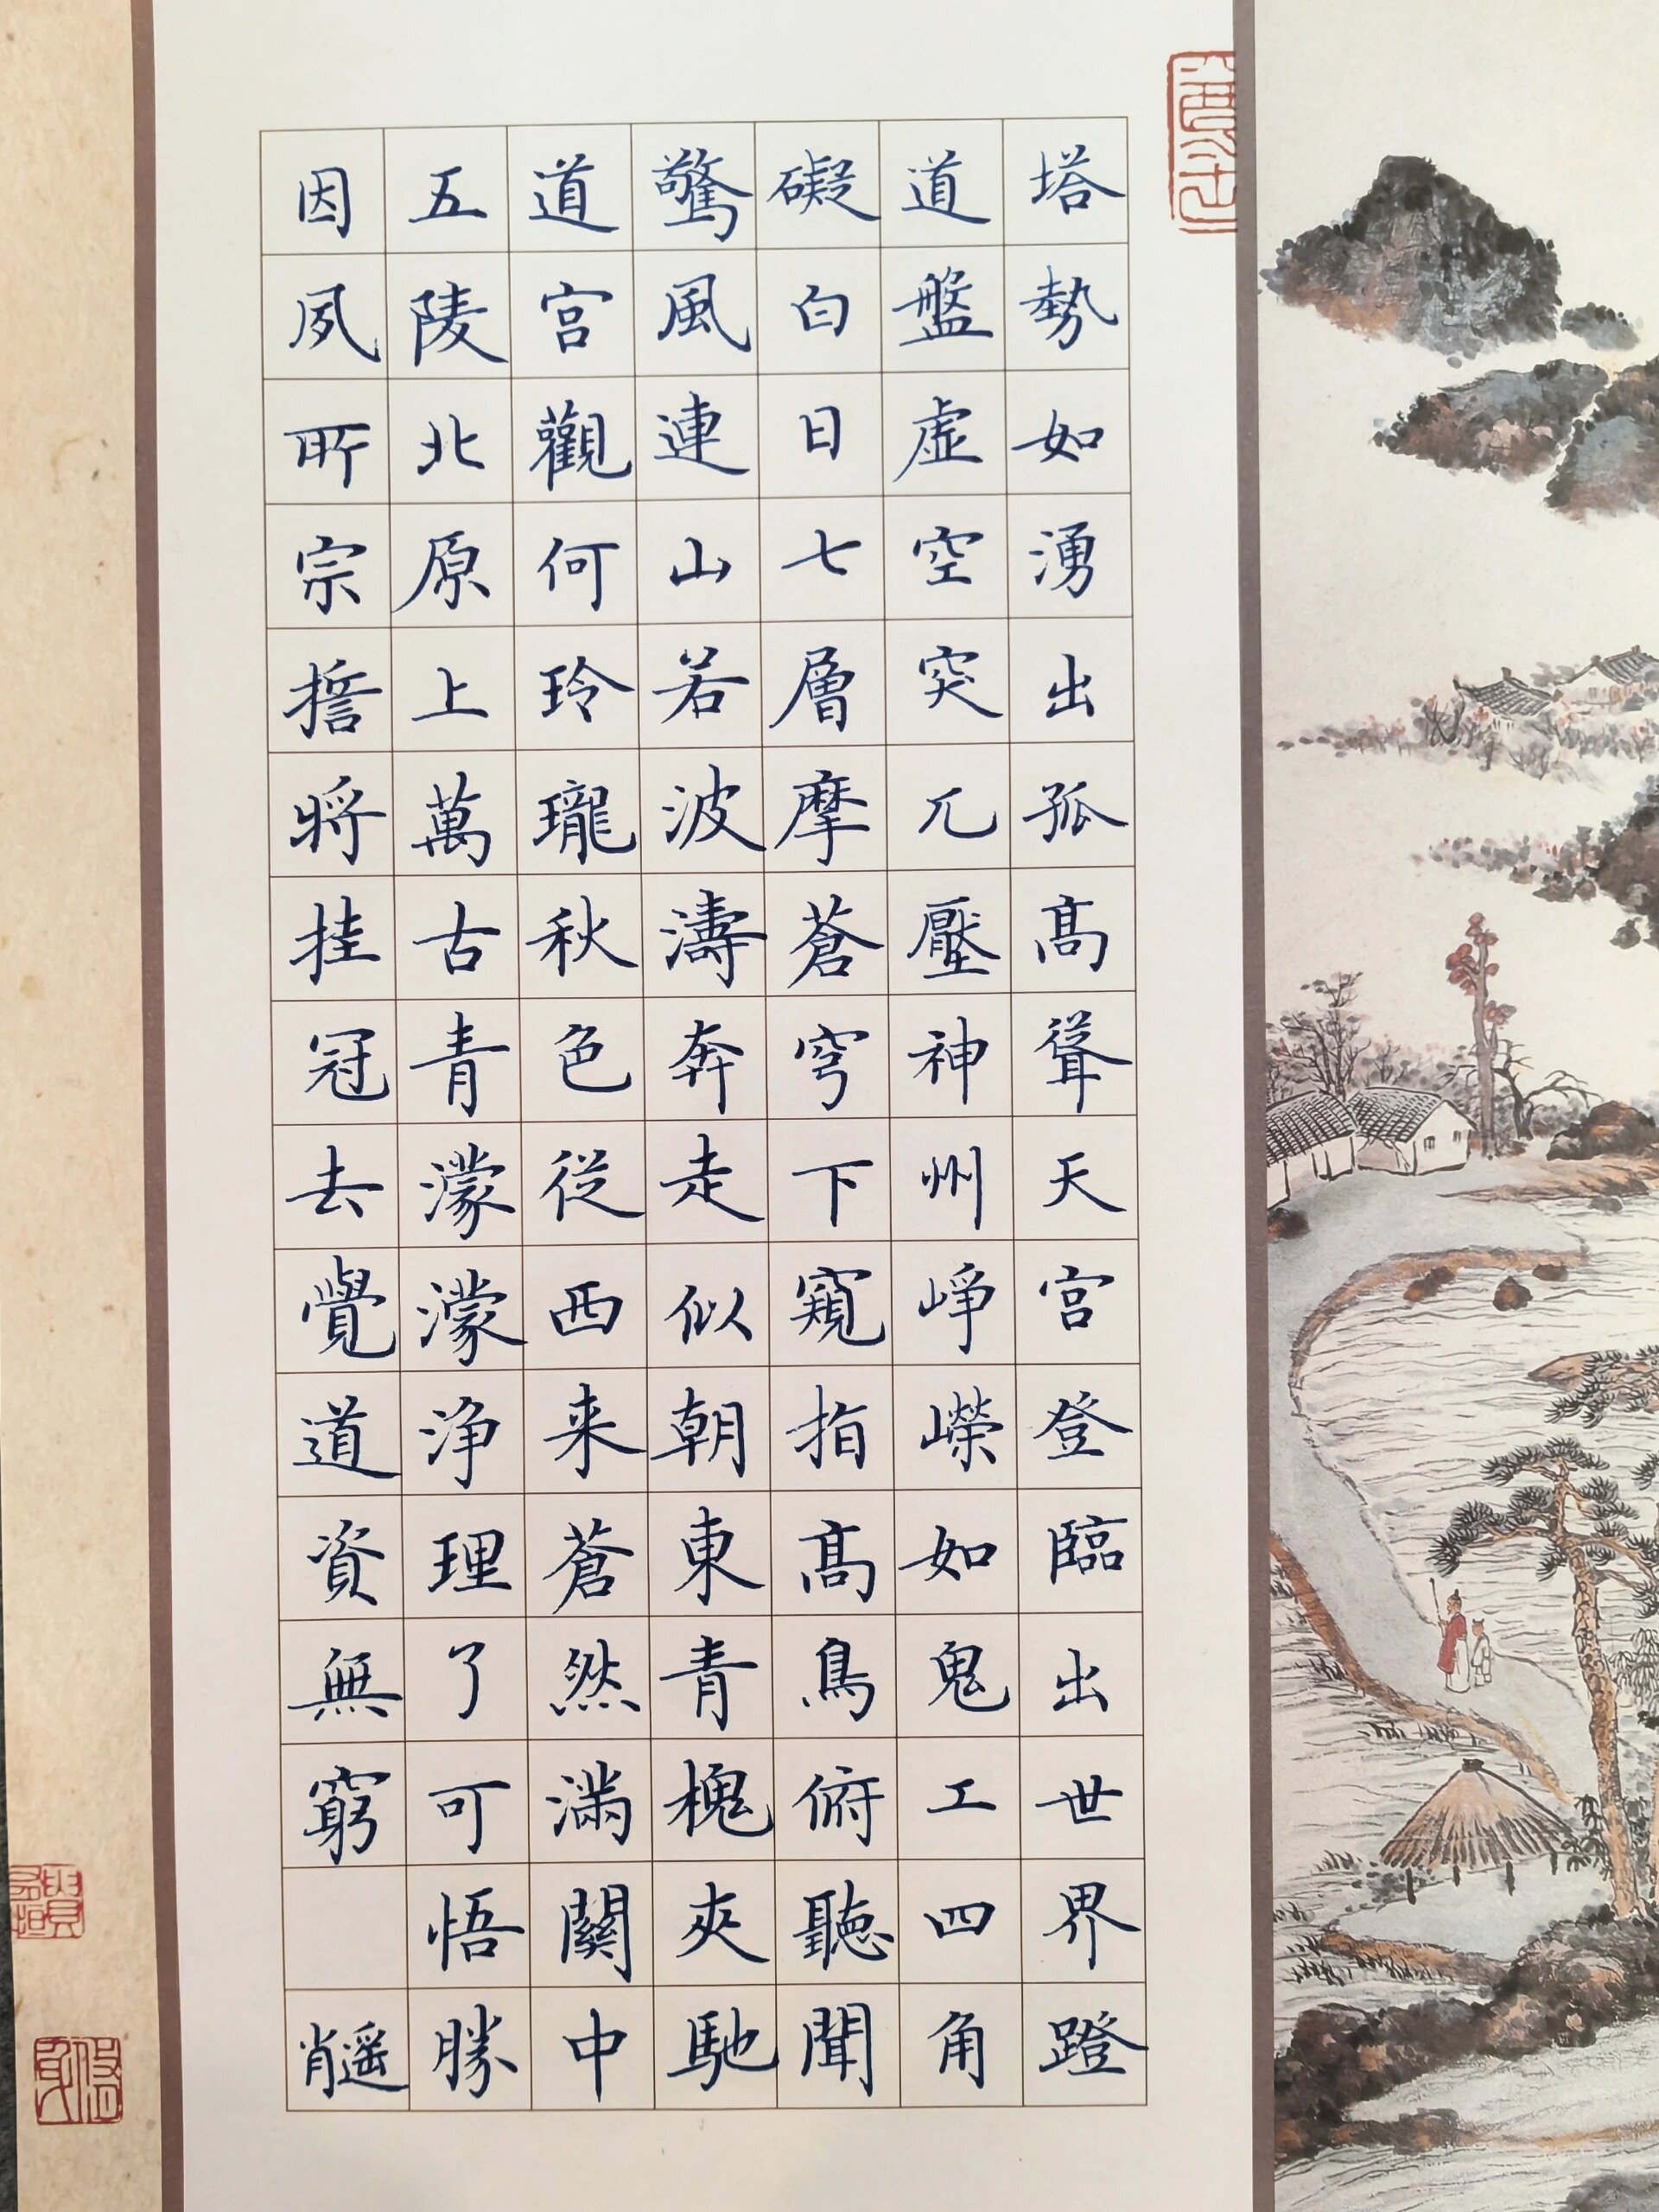 塔勢如湧出孤高聳天宮登臨出世界蹬
道盤虛空突兀壓神州崢嶸如鬼工四角
礙白日七層摩蒼穹下窺指高鳥俯聽聞
驚風連山若波濤奔走似朝東青槐夾馳
道宮觀何玲瓏秋色從西来蒼然滿關中
五陵北原上萬古青濛濛净理了可悟勝
因夙所宗誓將挂冠去覺道資無窮